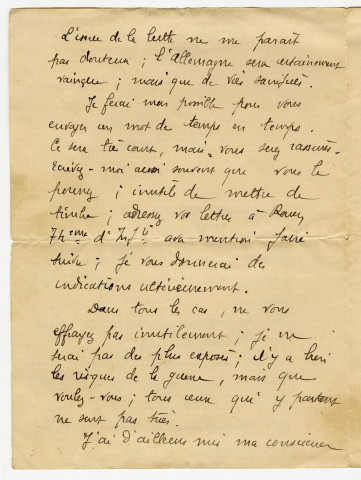 L'issue de la lutte ne me paraît
pas douteuse ; l'Allemagne sera certainement
vaincue ; mais que de vies sacrifiées.
Je ferai mon possible pour vous
envoyer un mot de temps en temps.
Ce sera très court, mais vous serez rassurés.
Ecrivez-moi aussi souvent que vous le
pourrez ; inutile de mettre de
timbre ; adressez vos lettres à Rouen
74ème d'Inf^ie avec mention faire
suivre ; je vous donnerai des
indications ultérieurement.
Dans tous les cas, ne vous
effrayez pas inutilement ; je ne
serai pas des plus exposés ; il y a bien
les risques de la guerre, mais que
voulez-vous ; tous ceux qui y partent
ne sont pas tués.
J'ai d'ailleurs mis ma conscience